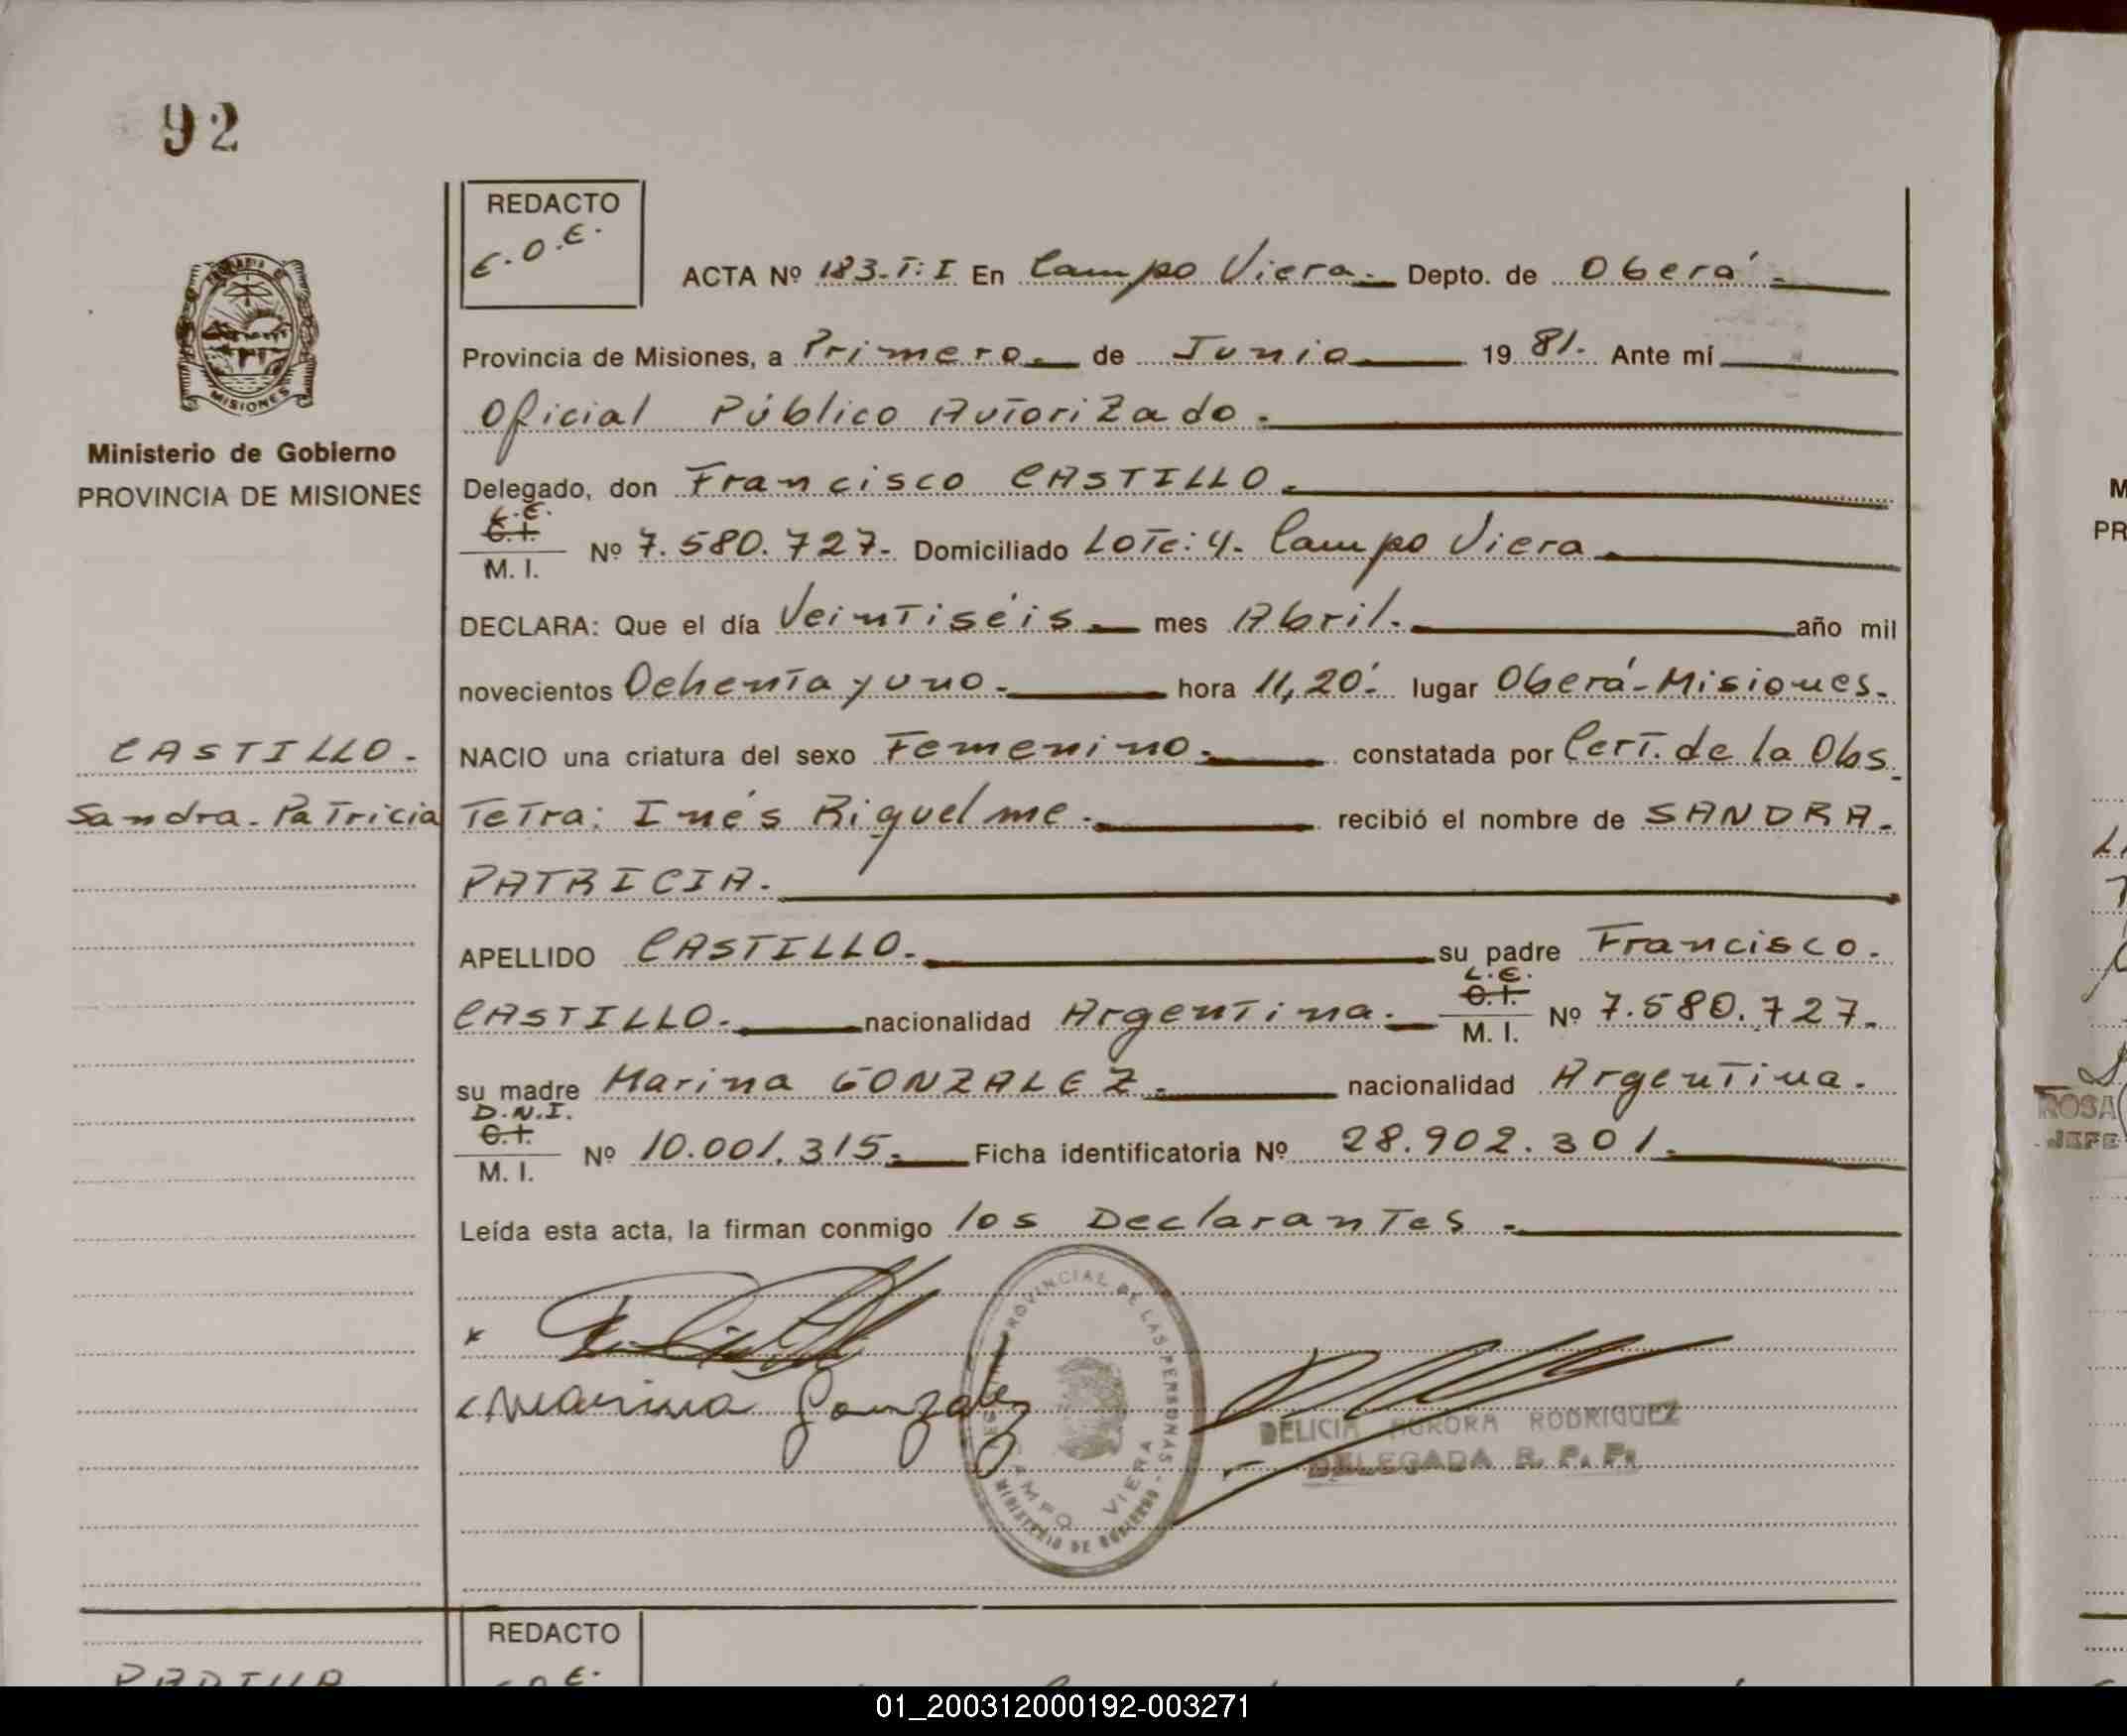 92
REDACTO
E.O.E.
ACTA Nº 183-T:I En Campo Viera.- Depto. de Oberá.-
Provincia de Misiones, a Primero.- de Junio 19 81.- Ante mí
Oficial Público Autorizado.-
MISIONES
Ministerio de Gobierno
PROVINCIA DE MISIONES
Delegado, don Francisco CASTILLO.-
L.E.
C.I.
M. I. Nº 7.580.727.- Domiciliado Lote: 4. Campo Viera.-
DECLARA: Que el día Veintiséis.- mes Abril.- año mil
novecientos Ochenta y uno.- hora 11,20'.- lugar Oberá-Misiones.-
CASTILLO.-
NACIO una criatura del sexo Femenino.- constatada por Cert. de la Obs
Sandra. Patricia
Tetra: Inés Riquelme.- recibió el nombre de SANDRA.-
PATRICIA.-
APELLIDO CASTILLO.- su padre Francisco.-
L.E.
C.I.
CASTILLO.- nacionalidad Argentina.- M. I. Nº 7.580.727.-
su madre Marina GONZALEZ.- nacionalidad Argentina.-
D.N.I.
C.I.
M. I. Nº 10.001.315.- Ficha identificatoria Nº 28.902.301.-
Leída esta acta, la firman conmigo los Declarantes.-
Marina Gonzalez
PROVINCIAL DE LAS PERSONAS
CAMPO VIERA
MINISTERIO DE GOBIERNO
DELICIA AURORA RODRIGUEZ
DELEGADA R. P. P.
REDACTO
ROSA
JEFE
01_200312000192-003271